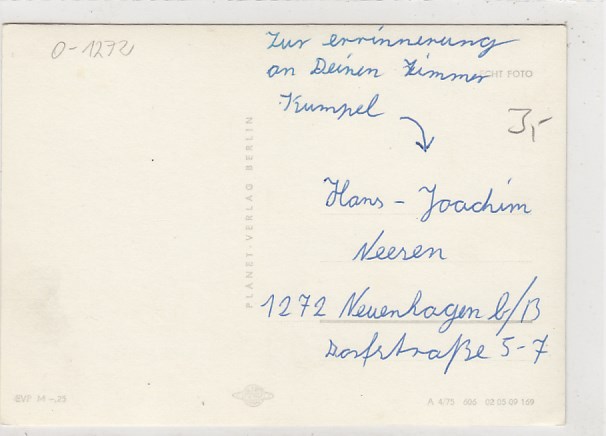 O-1272
Zur errinnerung
an Deinen Zimmer
ECHT FOTO
Kumpel
3,-
PLANET-VERLAG BERLIN
Hans - Joachim
Neeren
1272 Neuenhagen b/B
Dorfstraße 5-7
EVP M -,25
A 4/73 606 02 05 09 169